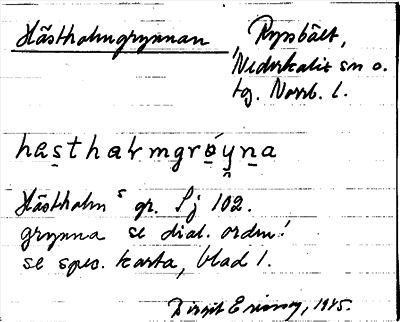 Hästholmgrynnan Rysbält,
Nederkalix sn o.
tg. Norrb. l.
hɑs̱thaɫmgrǿyṉa
Hästholm s gr. Sj 102.
grynna se dial. ordm!
se spec. karta, blad 1.
1945.